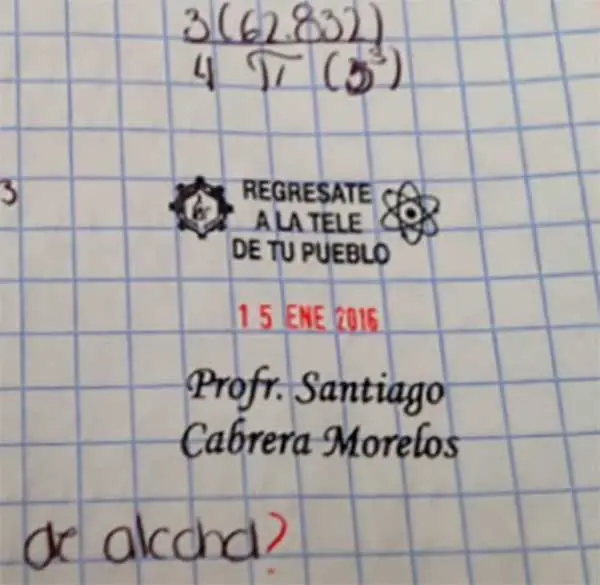 3(62.832)
4 π (5³)
3
REGRESATE
A LA TELE
DE TU PUEBLO
15 ENE 2016
Profr. Santiago
Cabrera Morelos
de alcohol?